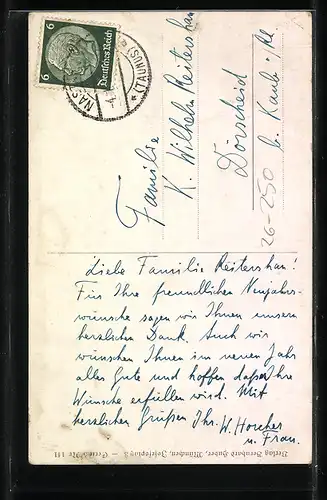 6 Deutsches Reich 6
(TAUNUS)
Familie
K. Wilhelm Reitershan
Dörscheid
b. Kaub a. Rh.
26-250
Liebe Familie Reitershan!
Für Ihre freundlichen Neujahrs-
wünsche sagen wir Ihnen unsern
herzlichen Dank. Auch wir
wünschen Ihnen im neuen Jahr
alles Gute und hoffen daß es Ihre
Wünsche erfüllen wird. Mit
herzlichen Grüßen Ihr. W. Horcher
u. Frau.
Verlag Bernhard Huber, München,